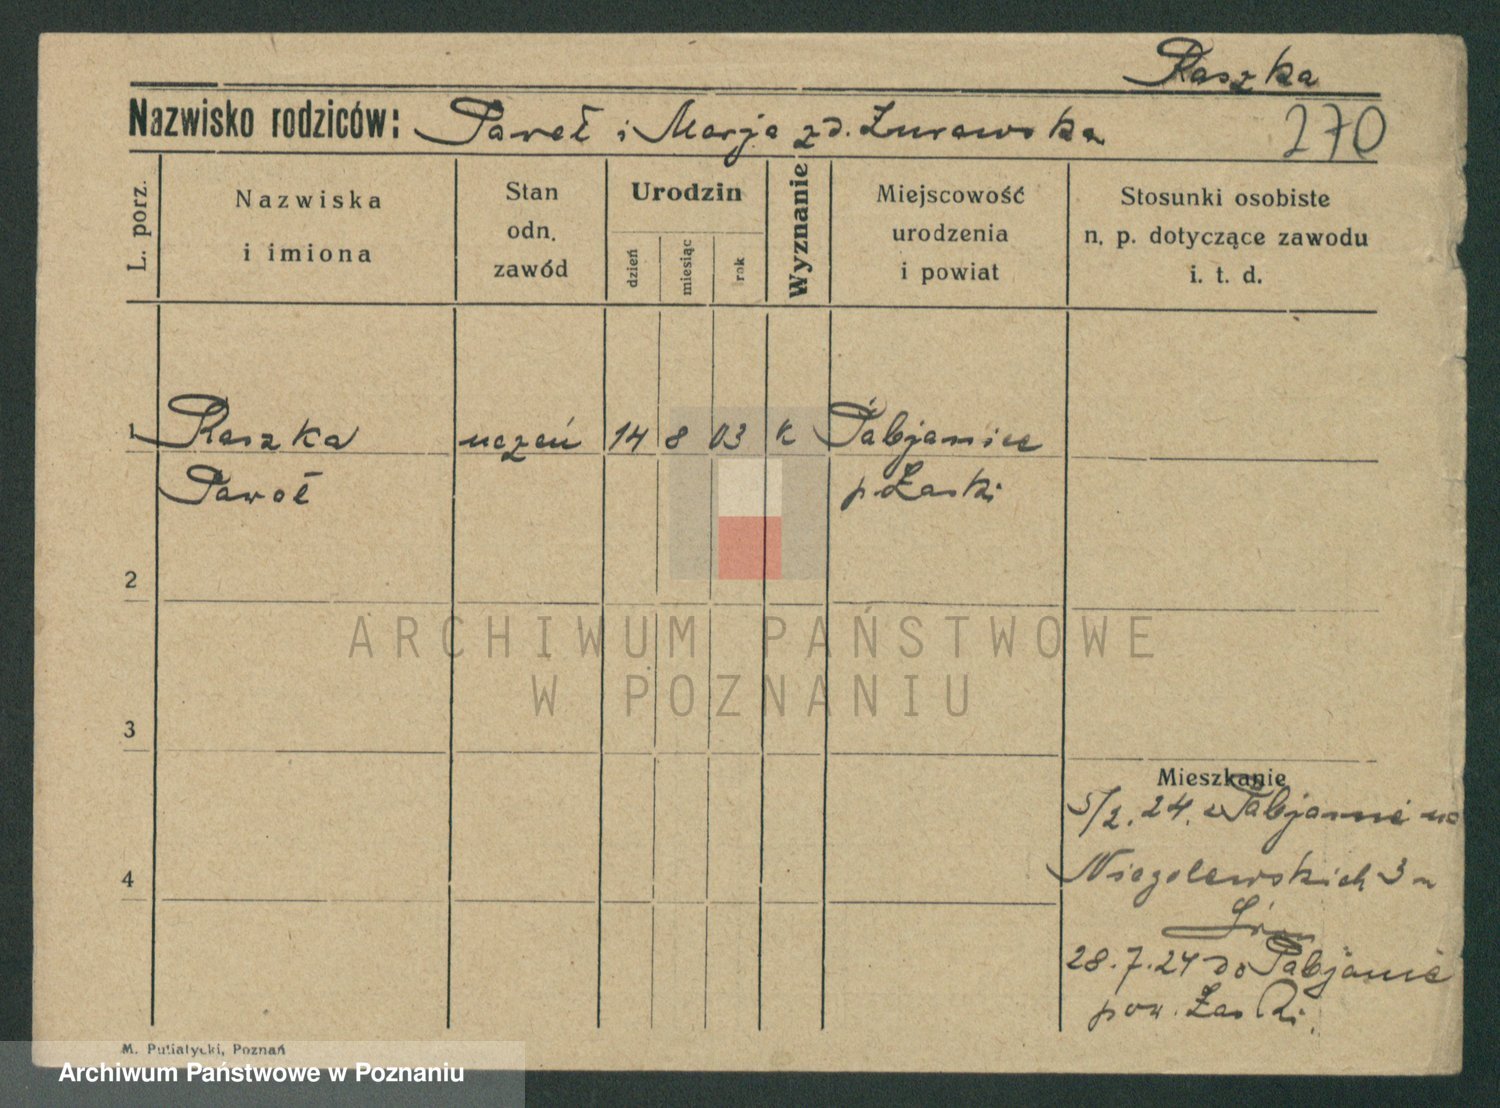 Raszka
Nazwisko rodziców: Paweł i Marja zd. Żurawska
270
L. porz.
Nazwiska
i imiona
Stan
odn.
zawód
Urodzin
dzień
miesiąc
rok
Wyznanie
Miejscowość
urodzenia
i powiat
Stosunki osobiste
n. p. dotyczące zawodu
i. t. d.
1 Raszka uczeń 14 8 03 k Pabjanice
Paweł p. Łaski
2
ARCHIWUM PAŃSTWOWE
W POZNANIU
3
Mieszkanie
5/2. 24. z Pabjanic na
4
Niegolewskich 3
28.7.24 do Pabjanic
pow. Łaski.
M. Putiatycki, Poznań
Archiwum Państwowe w Poznaniu